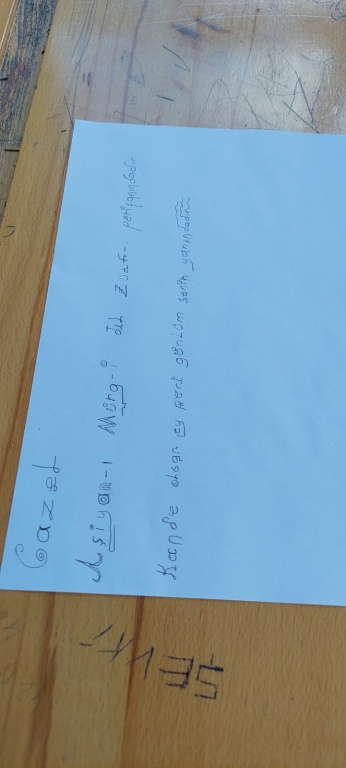 Gazel
Aşiyan-ı Mürg-i dil Zülf-i perişanındadır
Kande olsan ey peri gönlüm senin yanındadır
SEVTİ